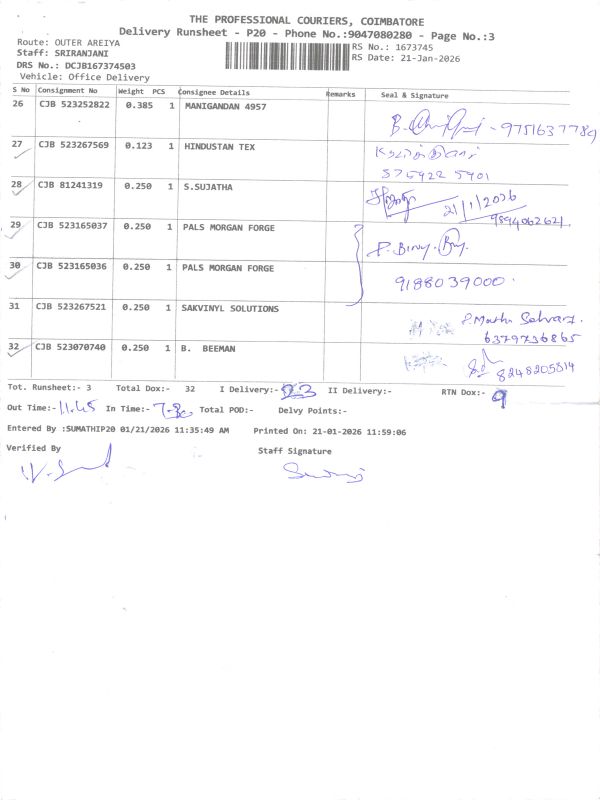 THE PROFESSIONAL COURIERS, COIMBATORE
Delivery Runsheet - P20 - Phone No.:9047080280 - Page No.:3
Route: OUTER AREIYA
RS No.: 1673745
Staff: SRIRANJANI
RS Date: 21-Jan-2026
DRS No.: DCJB167374503
Vehicle: Office Delivery
S No Consignment No Weight PCS Consignee Details Remarks Seal & Signature
26 CJB 523252822 0.385 1 MANIGANDAN 4957
B. - 9751637789
27 CJB 523267569 0.123 1 HINDUSTAN TEX
28 CJB 81241319 0.250 1 S.SUJATHA
21/1/2026
9894062621
29 CJB 523165037 0.250 1 PALS MORGAN FORGE
30 CJB 523165036 0.250 1 PALS MORGAN FORGE
9188039000
31 CJB 523267521 0.250 1 SAKVINYL SOLUTIONS
6379736865
32 CJB 523070740 0.250 1 B. BEEMAN
8248205814
Tot. Runsheet:- 3 Total Dox:- 32 I Delivery:- 23 II Delivery:- RTN Dox:- 9
Out Time:- 11.45 In Time:- Total POD:- Delvy Points:-
Entered By :SUMATHIP20 01/21/2026 11:35:49 AM Printed On: 21-01-2026 11:59:06
Verified By Staff Signature